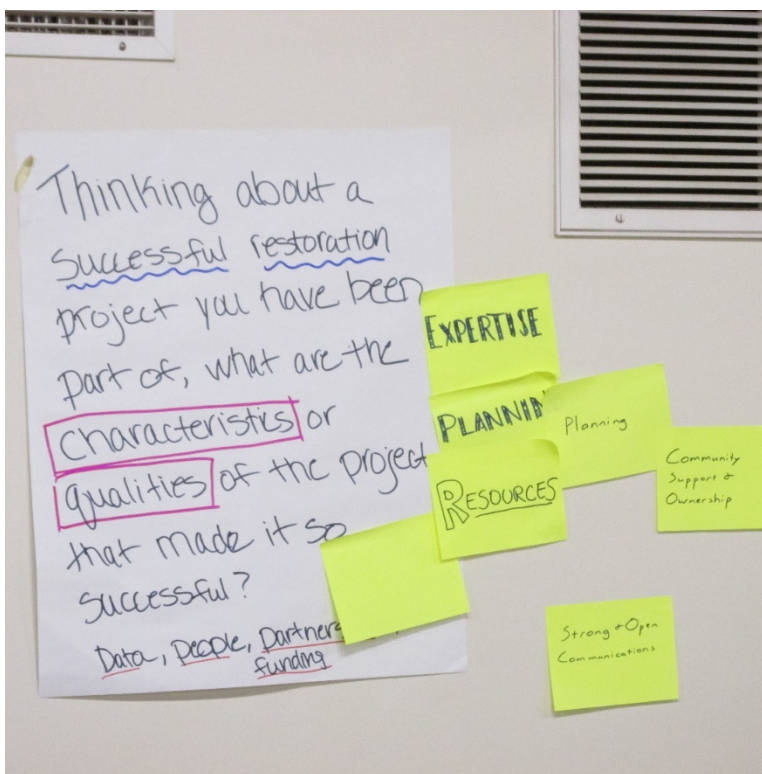 Thinking about a
successful restoration
project you have been
part of, what are the
characteristics or
qualities of the project
that made it so
successful?
Data, people, partner
funding
EXPERTISE
PLANNIN
RESOURCES
Planning
Community
Support &
Ownership
Strong & Open
Communications